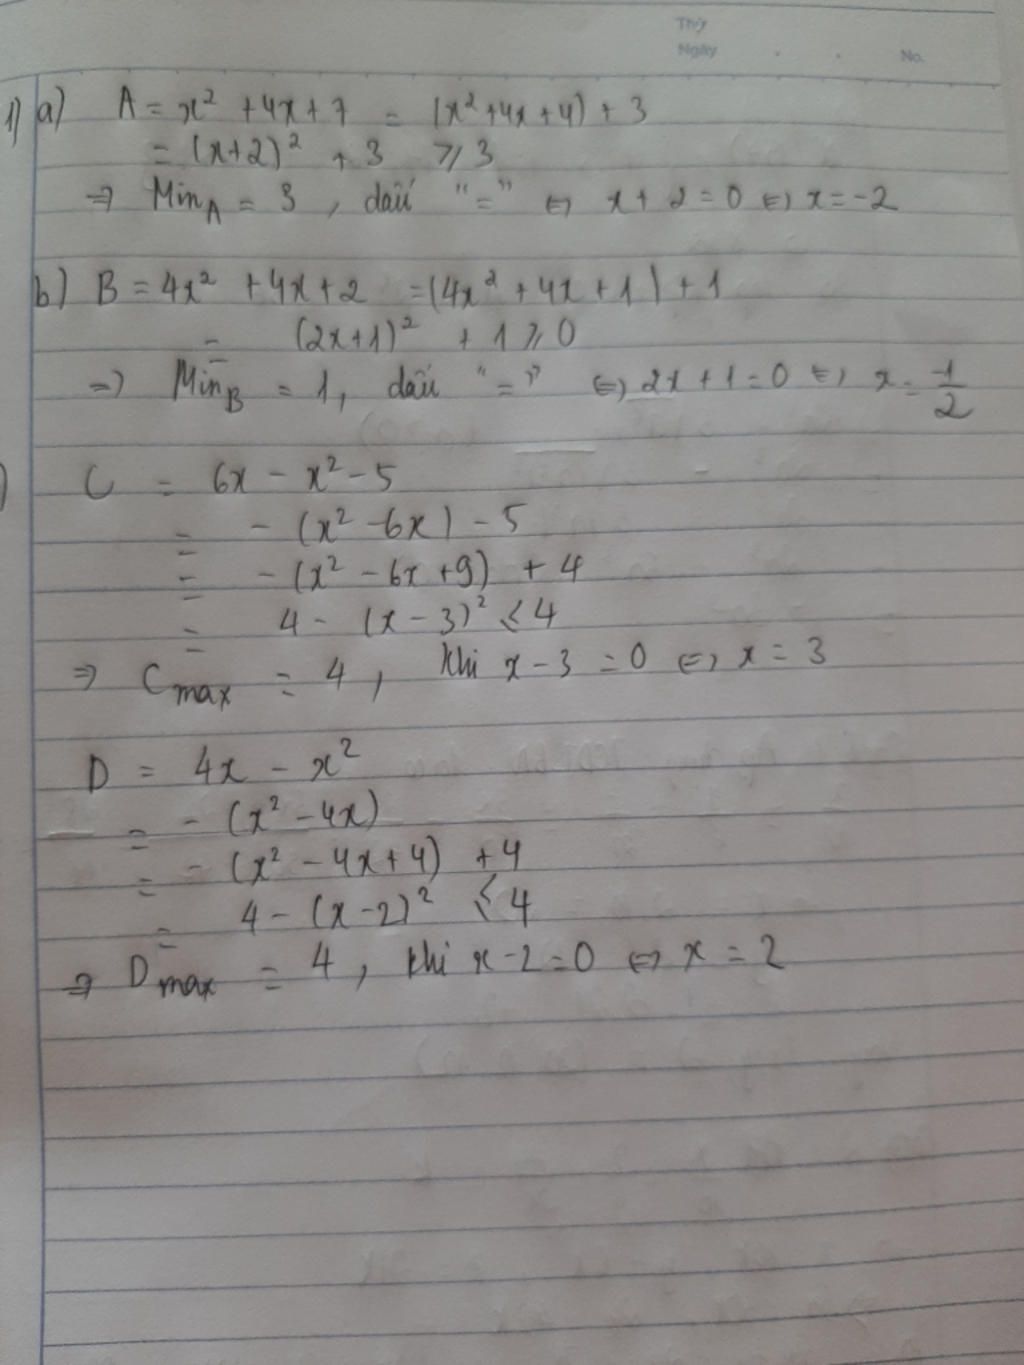 Thứ
Ngày . . No.
1) a) A = x² + 4x + 7 = (x² + 4x + 4) + 3
= (x+2)² + 3 ⩾ 3
⇒ Min_A = 3 , dấu "=" ⇔ x + 2 = 0 ⇔ x = -2
b) B = 4x² + 4x + 2 = (4x² + 4x + 1) + 1
= (2x+1)² + 1 ⩾ 0
⇒ Min_B = 1, dấu "=" ⇔ 2x + 1 = 0 ⇔ x = -1/2
) C = 6x - x² - 5
= - (x² - 6x) - 5
= - (x² - 6x + 9) + 4
= 4 - (x - 3)² ⩽ 4
⇒ C_max = 4 , khi x - 3 = 0 ⇔ x = 3
D = 4x - x²
= - (x² - 4x)
= - (x² - 4x + 4) + 4
= 4 - (x - 2)² ⩽ 4
⇒ D_max = 4 , khi x - 2 = 0 ⇔ x = 2